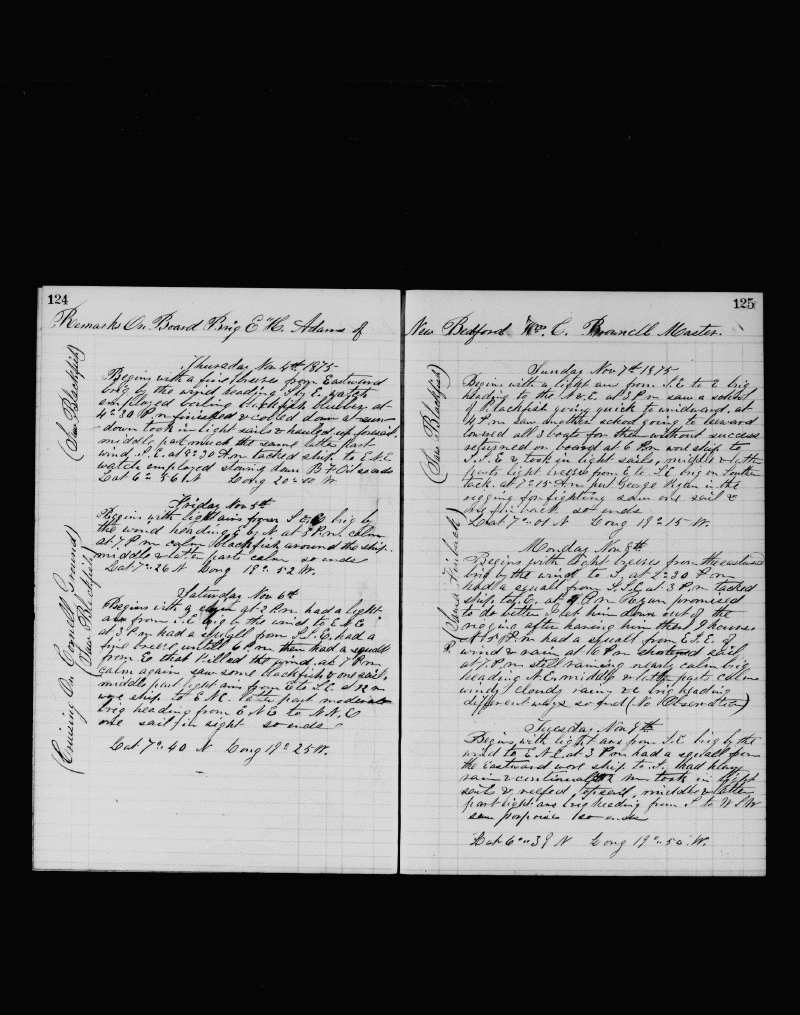 124
Remarks On Board Brig E. H. Adams of
(Saw Blackfish)
Thursday Nov 4th 1875
Begins with a fine breeze from Eastward
brig by the wind heading S by E, watch
employed boiling blackfish blubber at
4 " 30 P m finished & cooled down at sun
down took in light sails & hauled up foresail
middle part much the same latter part
wind S. E. at 8 " 30 A m tacked ship to E.N.E
watch employed stowing down B F Oil so ends
Lat 6 " 56 N Long 20 " 10 W
(Cruising On Cornell Ground)
(Saw Blackfish)
Friday Nov 5th
Begins with light airs from S E brig by
the wind heading E by N at 3 P m calm
at 7 P m calm blackfish around the ship
middle & latter parts calm so ends
Lat 7 " 26 N Long 19 " 52 W.
Saturday Nov 6th
Begins with a calm at 2 P m had a light
air from S.E brig by the wind to E N E
at 3 P m had a squall from S.S.E. had a
fine breeze until 6 P m then had a squall
from E that killed the wind at 7 P m
calm again saw some blackfish & one sail
middle part light airs from E to S.E. at 12 m
wore ship to E N E. latter part moderate
brig heading from E N E to N.N.E
one sail in sight so ends
Lat 7 " 40 N Long 19 " 25 W.
125
New Bedford Wm C. Brownell Master.
(Saw Blackfish)
Sunday Nov 7th 1875
Begins with a light air from S.E to E brig
heading to the N & E. at 3 P m saw a school
of Blackfish going quick to windward, at
4 P m saw another school going to leeward
lowered all 3 boats for them without success
returned on board at 6 P m wore ship to
S.S.E & took in light sails, middle & latter
parts light breeze from E to S.E. brig on Southern
tack. at 7 " 15 A m put George Ryan in the
rigging for fighting saw one sail &
so ends
Lat 7 " 01 N Long 19 " 15 W.
(Saw a Finback)
Monday Nov 8th
Begins with light breezes from the eastward
brig by the wind to S, at 2 " 30 P m
had a squall from S.S.E at 3 P m tacked
ship to E, at 4 P m Ryan promised
to do better I let him down out of the
rigging after having him there 9 hours
At 5 P m had a squall from E.S.E. of
wind & rain at 6 P m shortened sail
at 7 P.m still raining nearly calm brig
heading N.E, middle & latter parts calm
windy cloudy rainy &c brig heading
different ways so ends (No Observation)
Tuesday Nov 9th
Begins with light airs from S.E brig by the
wind to E N E, at 3 P m had a squall from
the Eastward wore ship to S, had heavy
rain & continual took in light
sails & reefed topsail, middle & latter
part light airs brig heading from S to W S W
saw porpoises so ends
Lat 6 " 39 N Long 19 " 50 W.